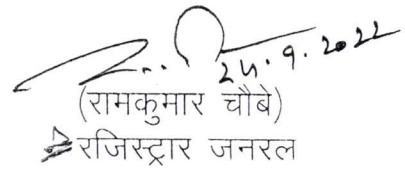 25.9.2022
(रामकुमार चौबे)
रजिस्ट्रार जनरल